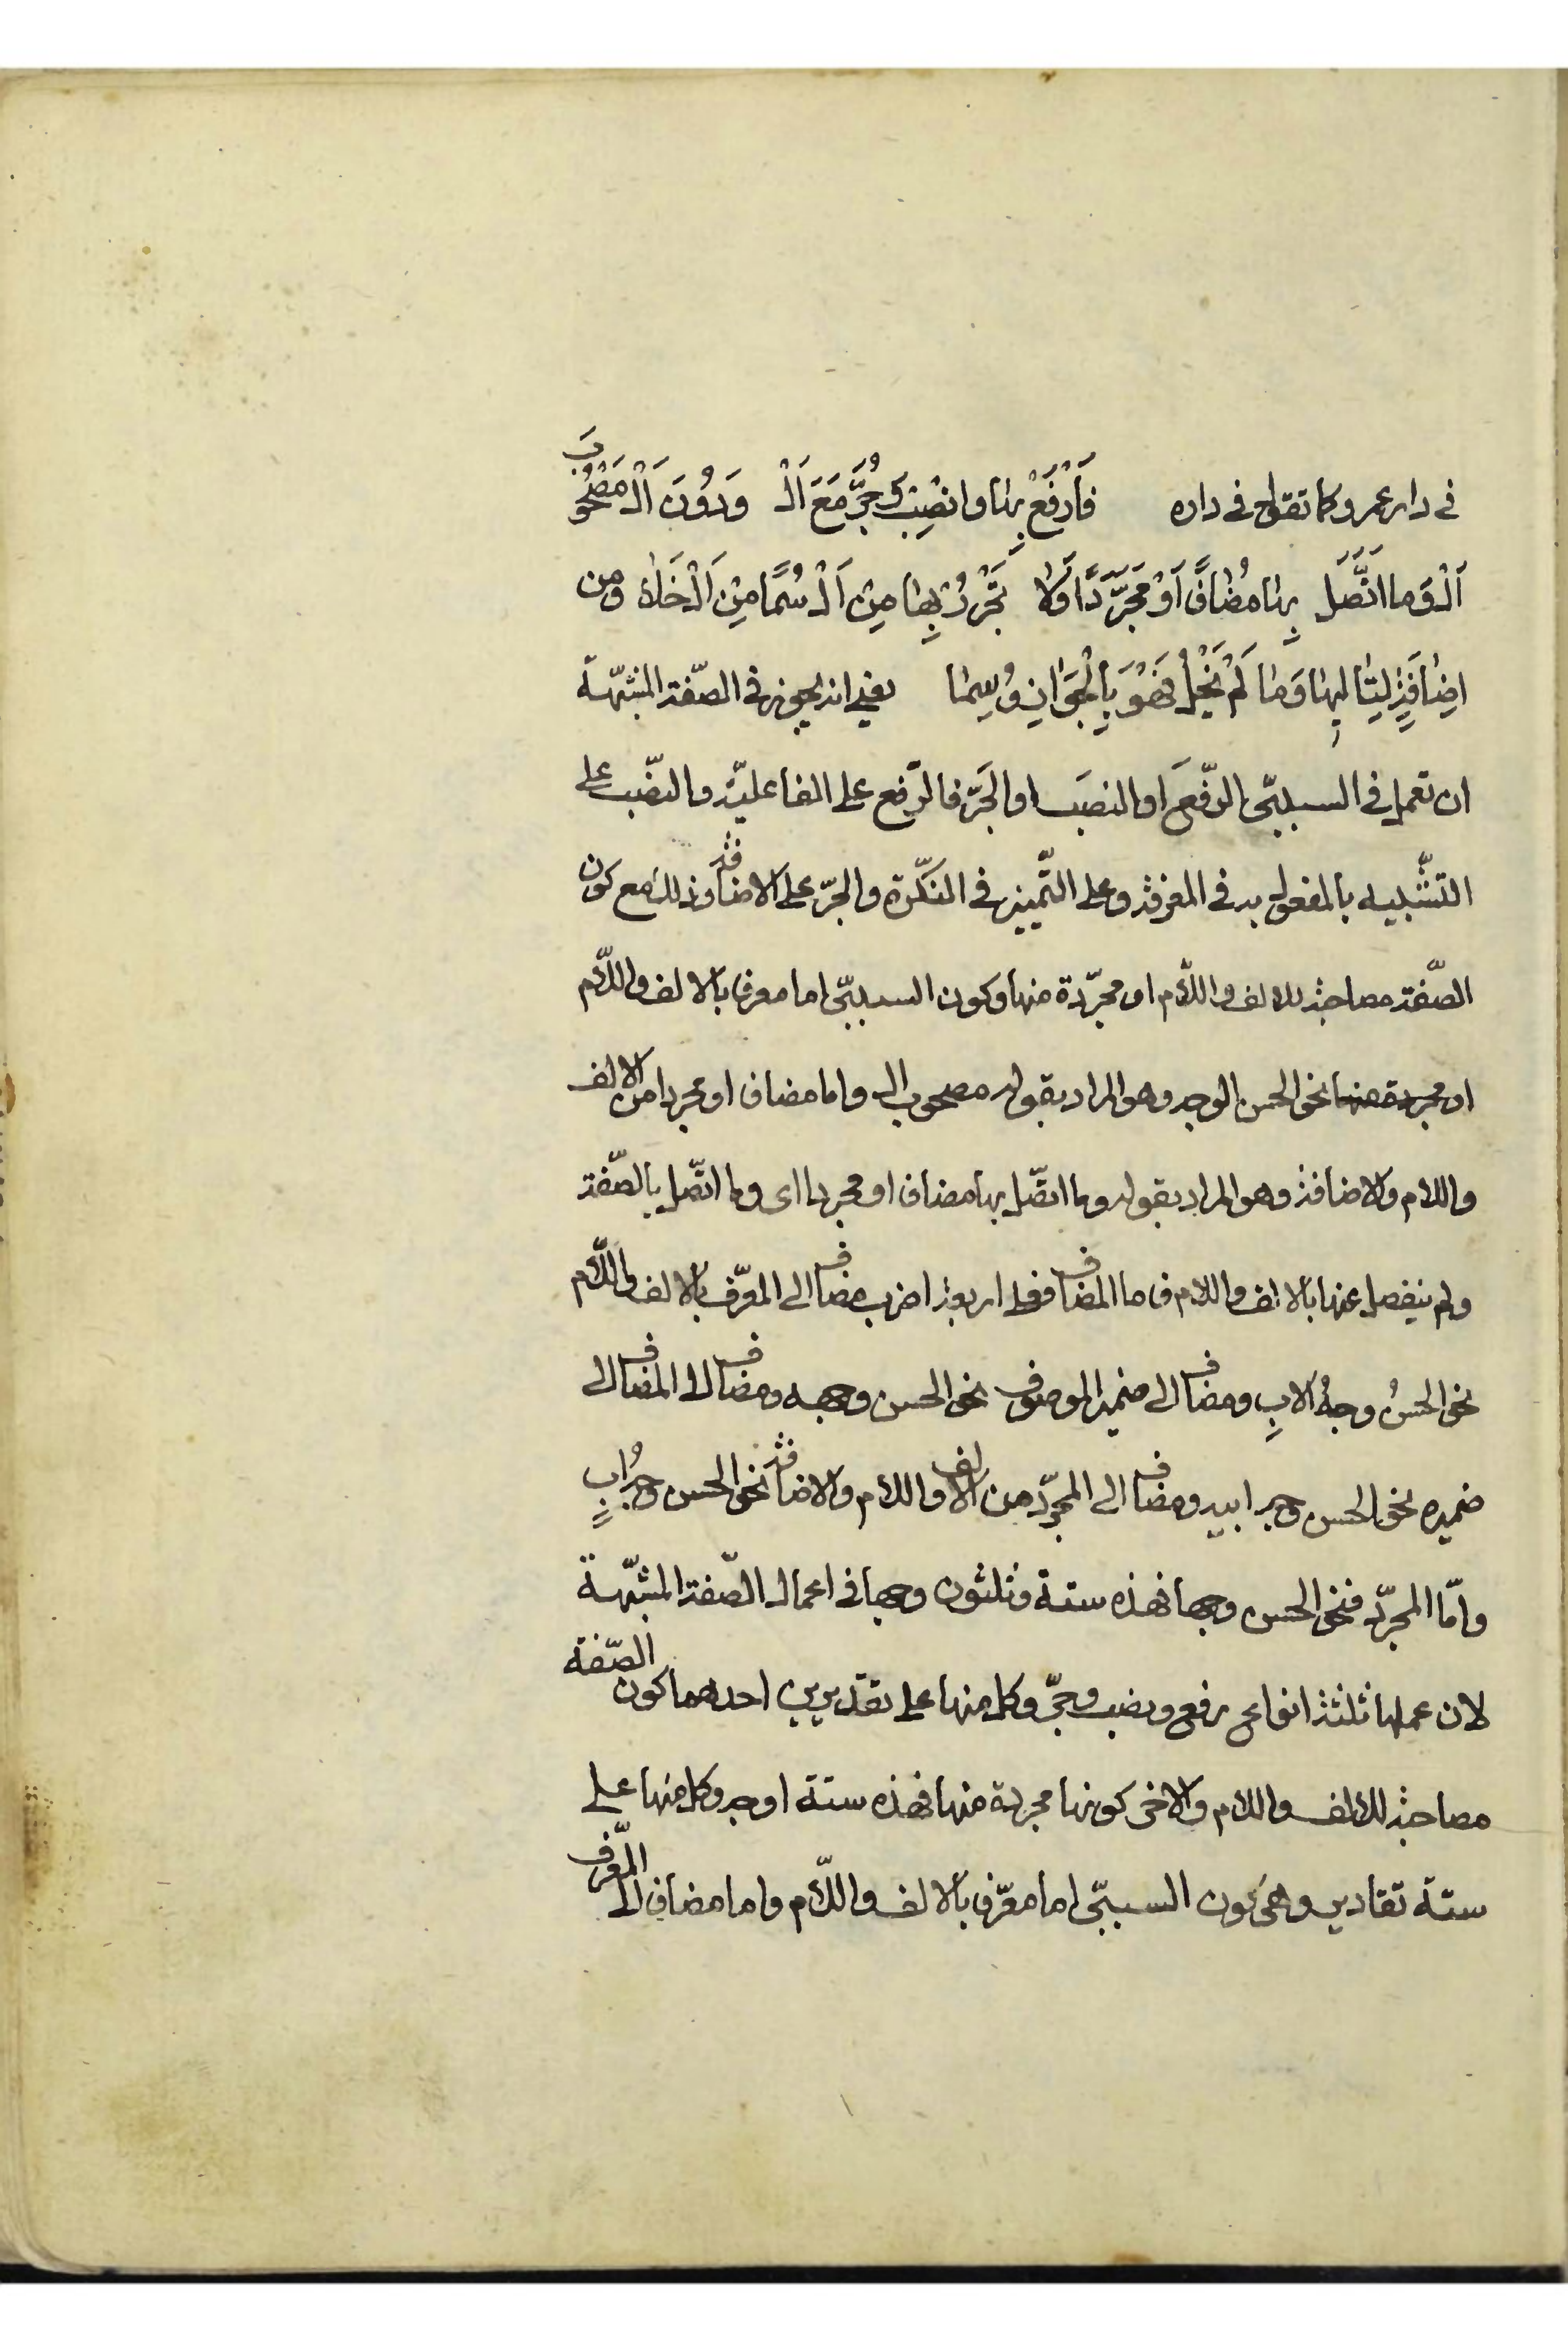 في دار عمرو كما تقول في داره فَارْفَعْ بِهَا وانْصِب وَجُرَّ مَعَ اَلْ وَدُونَ اَلْ مَصْحُوبَ
اَلْ وَما اتَّصَل بِهَا مُضَافًا اَوْ مُجَرَّدًا وَلا تَجْرُرْ بِهَا مِنْ اَلْ سُمًا مِنْ اَلْ خَلا ومن
اِضَافَةٍ لِتَالِيهَا وَمَا لَمْ يَخْلُ فَهْوَ بِالْجَوَازِ وُسِمَا يعني انه يجوز في الصّفة المشبّهة
ان تعمل في السببيّ الرّفعَ او النصبَ او الجَرّ فالرّفع على الفاعليّة والنصّب على
التشّبيه بالمفعول به في المعرفة وعلى التّمييز في النكّرة والجرّ على الاضافة وذلك مع كون
الصّفة مصاحبة للالف واللّام او مجرّدة منها وكون السببيّ اما معرفا بالالف واللّام
او مجردة منها نحو الحسن الوجه وهو المراد بقوله مصحوب ال واما مضاف او مجردا من الالف
واللام والاضافة وهو المراد بقوله وما اتّصل بها مضاف او مجردا اى وما اتّصل بالصّفة
ولم ينفصل عنها بالالف واللام فاما المضاف فعلى اربعة اضرب مضاف الى المعرّف بالالف واللّام
نحو الحسنُ وجهُ الابِ ومضاف الى ضمير الموصوف نحو الحسن وجهه ومضاف الى المضاف الى
ضميره نحو الحسن وجه ابيه ومضاف الى المجرّد من الالف واللام والاضافة نحو الحسن وجهُ ابٍ
وامّا المجرّد فنحو الحسن وجها فهذه ستة وثلثون وجها في اعمال الصّفة المشبّهة
لان عملها ثلثة انواع رفع ونصب وجرّ وكل منها على تقديرين احدهما كون الصّفة
مصاحبة للالف واللام والاخرى كونها مجردة منها فهذه ستة اوجه وكل منها على
ستة تقادير وهي كون السببيّ اما معرّف بالالف واللّام واما مضاف الى المعّرف